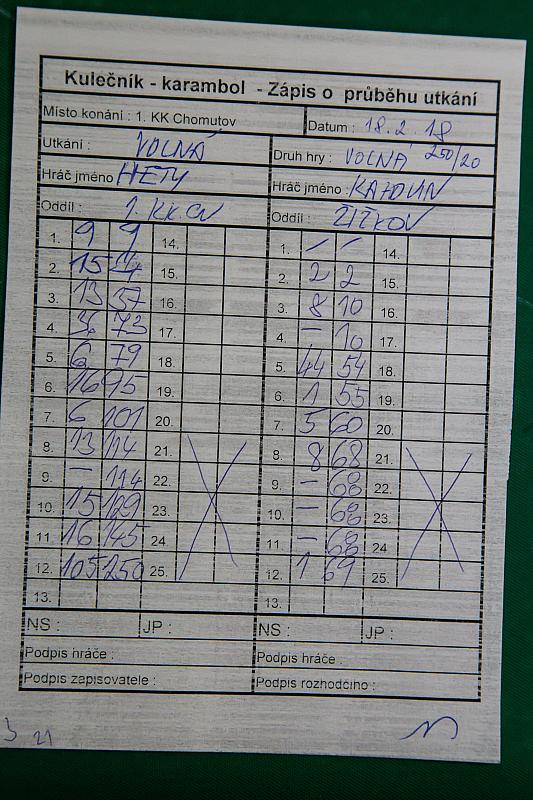 Kulečník - karambol - Zápis o průběhu utkání
Místo konání : 1. KK Chomutov Datum : 18.2.18
Utkání : VOLNÁ Druh hry : VOLNÁ 250/20
Hráč jméno HETY Hráč jméno :
Oddíl : 1. KK. CV Oddíl : ŽIŽKOV
1. 9 9 14. 1. – – 14.
2. 15 24 15. 2. 2 2 15.
3. 13 37 16. 3. 8 10 16.
4. 36 73 17. 4. – 10 17.
5. 6 79 18. 5. 44 54 18.
6. 16 95 19. 6. 1 55 19.
7. 6 101 20. 7. 5 60 20.
8. 13 114 21. 8. 8 68 21.
9. – 114 22. 9. – 68 22.
10. 15 129 23. 10. – 68 23.
11. 16 145 24 11. – 68 24
12. 105 250 25. 12. 1 69 25.
13. 13.
NS : JP : NS : JP :
Podpis hráče : Podpis hráče :
Podpis zapisovatele : Podpis rozhodčího :
21